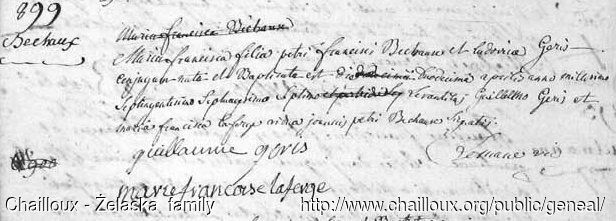 899
Bechaux
Maria francisca Bechaux
Maria francisca filia petri francisci Bechaux et ludovicæ Goris
conjugum nata et Baptisata est duodecima aprilis anno millesimo
Septingentesimo Septuagesimo Septimo Levantib; Guillelmo Goris et
maria francisca laforge vidua joannis petri Bechaux
guillaume goris
marie francoise laferge
Chailloux - Żelaska family
http://www.chailloux.org/public/geneal/